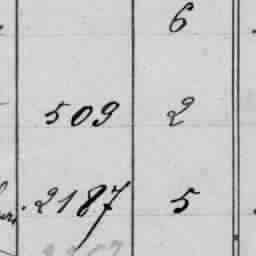 6
509 2
2187 5